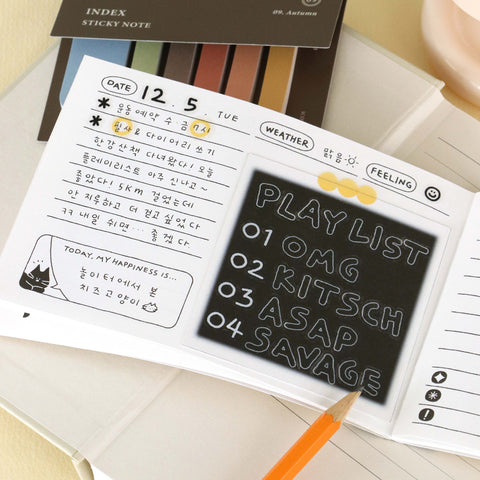 INDEX
STICKY NOTE
09
09. Autumn
DATE 12. 5. TUE
* 운동예약 수·금 7시
* 필사 & 다이어리 쓰기
한강산책 다녀왔다! 오늘
플레이리스트 아주 신나고~
좋았다! 5km 걸었는데
안 지루하고 더 걷고 싶었다
ㅋㅋ 내일 쉬면... 좋겠다.
TODAY, MY HAPPINESS IS...
놀이터에서 본
치즈고양이
WEATHER 맑음
FEELING
PLAY LIST
01 OMG
02 KITSCH
03 ASAP
04 SAVAGE